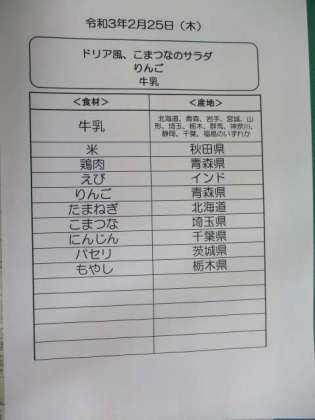 令和3年2月25日（木）
ドリア風、こまつなのサラダ
りんご
牛乳
＜食材＞ ＜産地＞
牛乳 北海道、青森、岩手、宮城、山
形、埼玉、栃木、群馬、神奈川、
静岡、千葉、福島のいずれか
米 秋田県
鶏肉 青森県
えび インド
りんご 青森県
たまねぎ 北海道
こまつな 埼玉県
にんじん 千葉県
パセリ 茨城県
もやし 栃木県